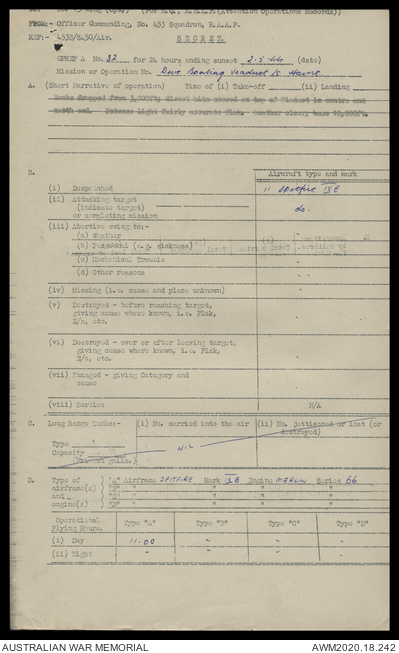 FROM:- Officer Commanding, No. 453 Squadron, R.A.A.F.
REF:- 453S/S.50/Air. SECRET.
OPREP A No. 32 for 24 hours ending sunset 2.5.44 (date)
Mission or Operation No. Dive Bombing Viaduct Le Havre
A. (Short Narrative of operation) Time of (i) Take-off (ii) Landing
Bombs dropped from 3,000ft; direct hits scored on top of Viaduct in centre and
south end. Intense light fairly accurate flak. Weather clear; base 10,000ft.
B. Aircraft type and mark
(i) Despatched 11 Spitfire IX B
(ii) Attacking target do.
(indicate target)
or completing mission
(iii) Abortive owing to:-
(a) Weather -
(b) Personnel (e.g. sickness)
(c) Mechanical Trouble -
(d) Other reasons -
(iv) Missing (i.e. cause and place unknown) -
(v) Destroyed - before reaching target, -
giving cause where known, i.e. Flak,
E/a, etc.
(vi) Destroyed - over or after leaving target, -
giving cause where known, i.e. Flak,
E/a, etc.
(vii) Damaged - giving Category and -
cause
(viii) Sorties N/A
C. Long Range Tanks:- (i) No. carried into the air (ii) No. jettisoned or lost (or
destroyed)
Type
Capacity NIL
(British galls.)
D. Type of ) "A" Airframe SPITFIRE Mark IX B Engine MERLIN Series 66
airframe(s) ) "B" " " " "
and ) "C" " " " "
engine(s) ) "D" " " " "
Operational Type "A" Type "B" Type "C" Type "D"
Flying Hours.
(i) Day 11.00 - - -
(ii) Night - - - -
AUSTRALIAN WAR MEMORIAL AWM2020.18.242